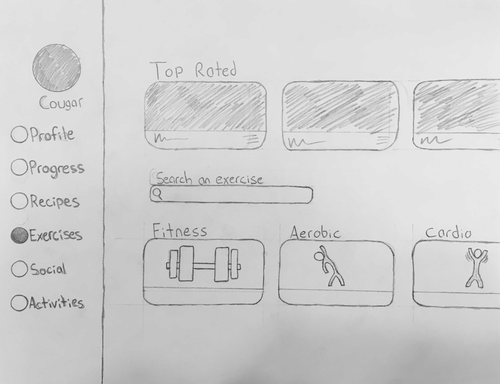 Cougar
Profile
Progress
Recipes
Exercises
Social
Activities
Top Rated
Search an exercise
Fitness
Aerobic
Cardio